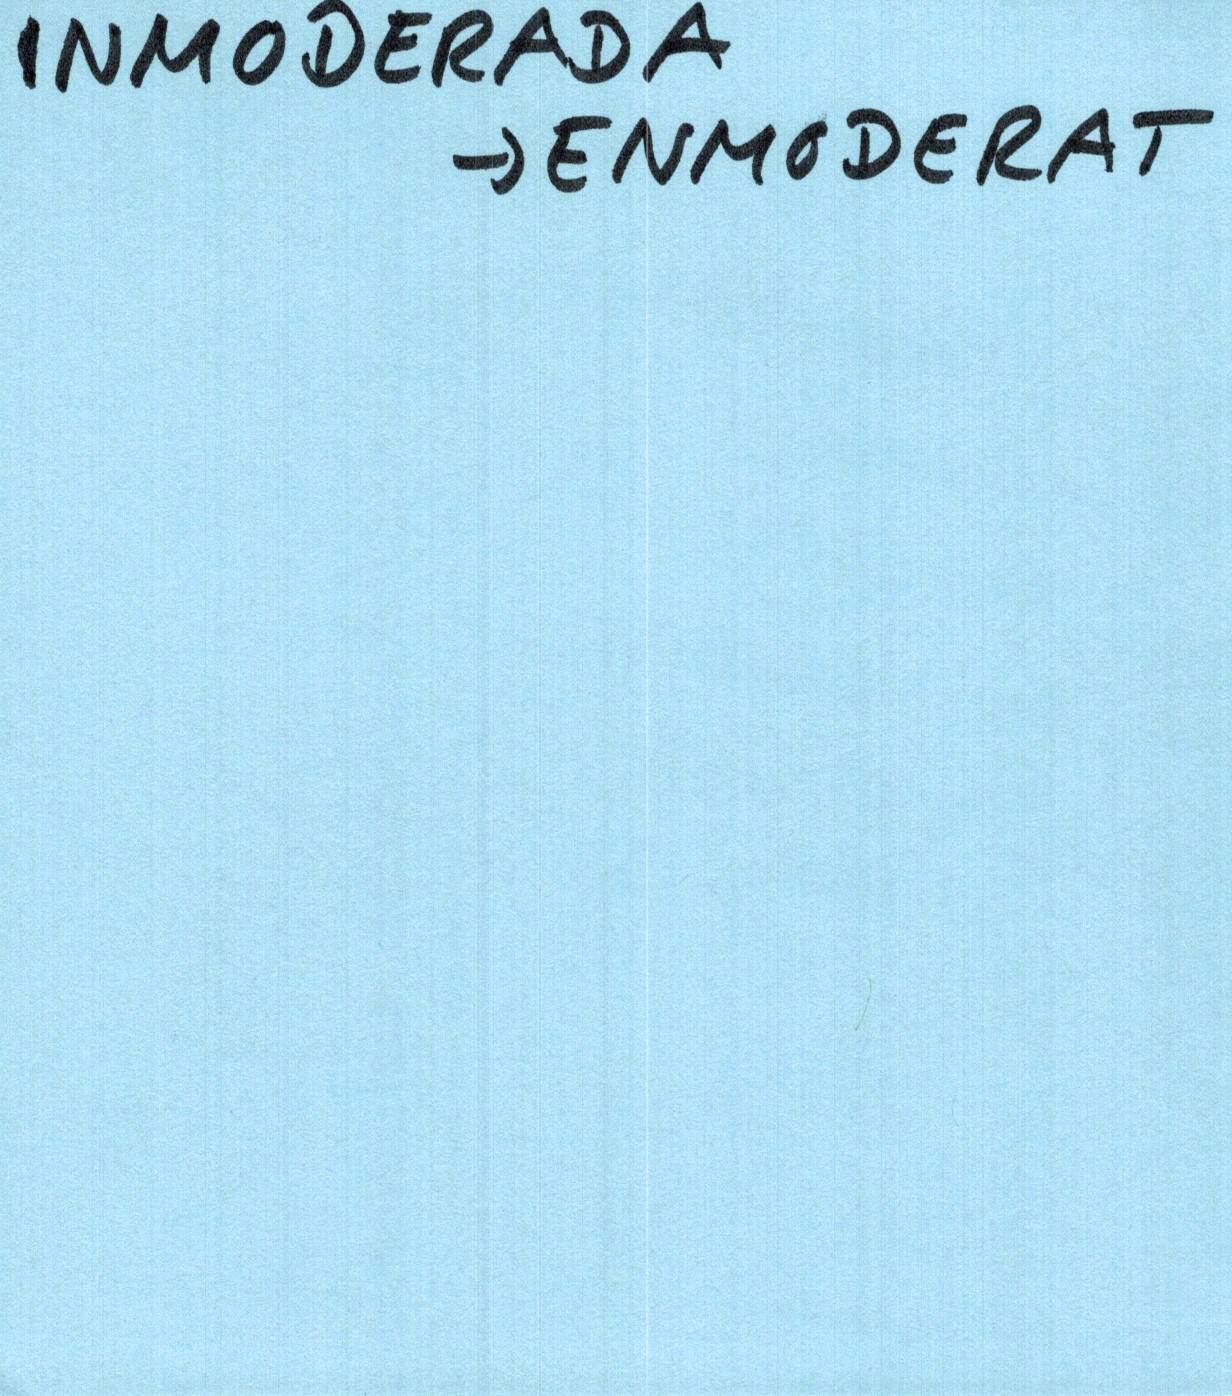 INMODERADA
→ENMODERAT